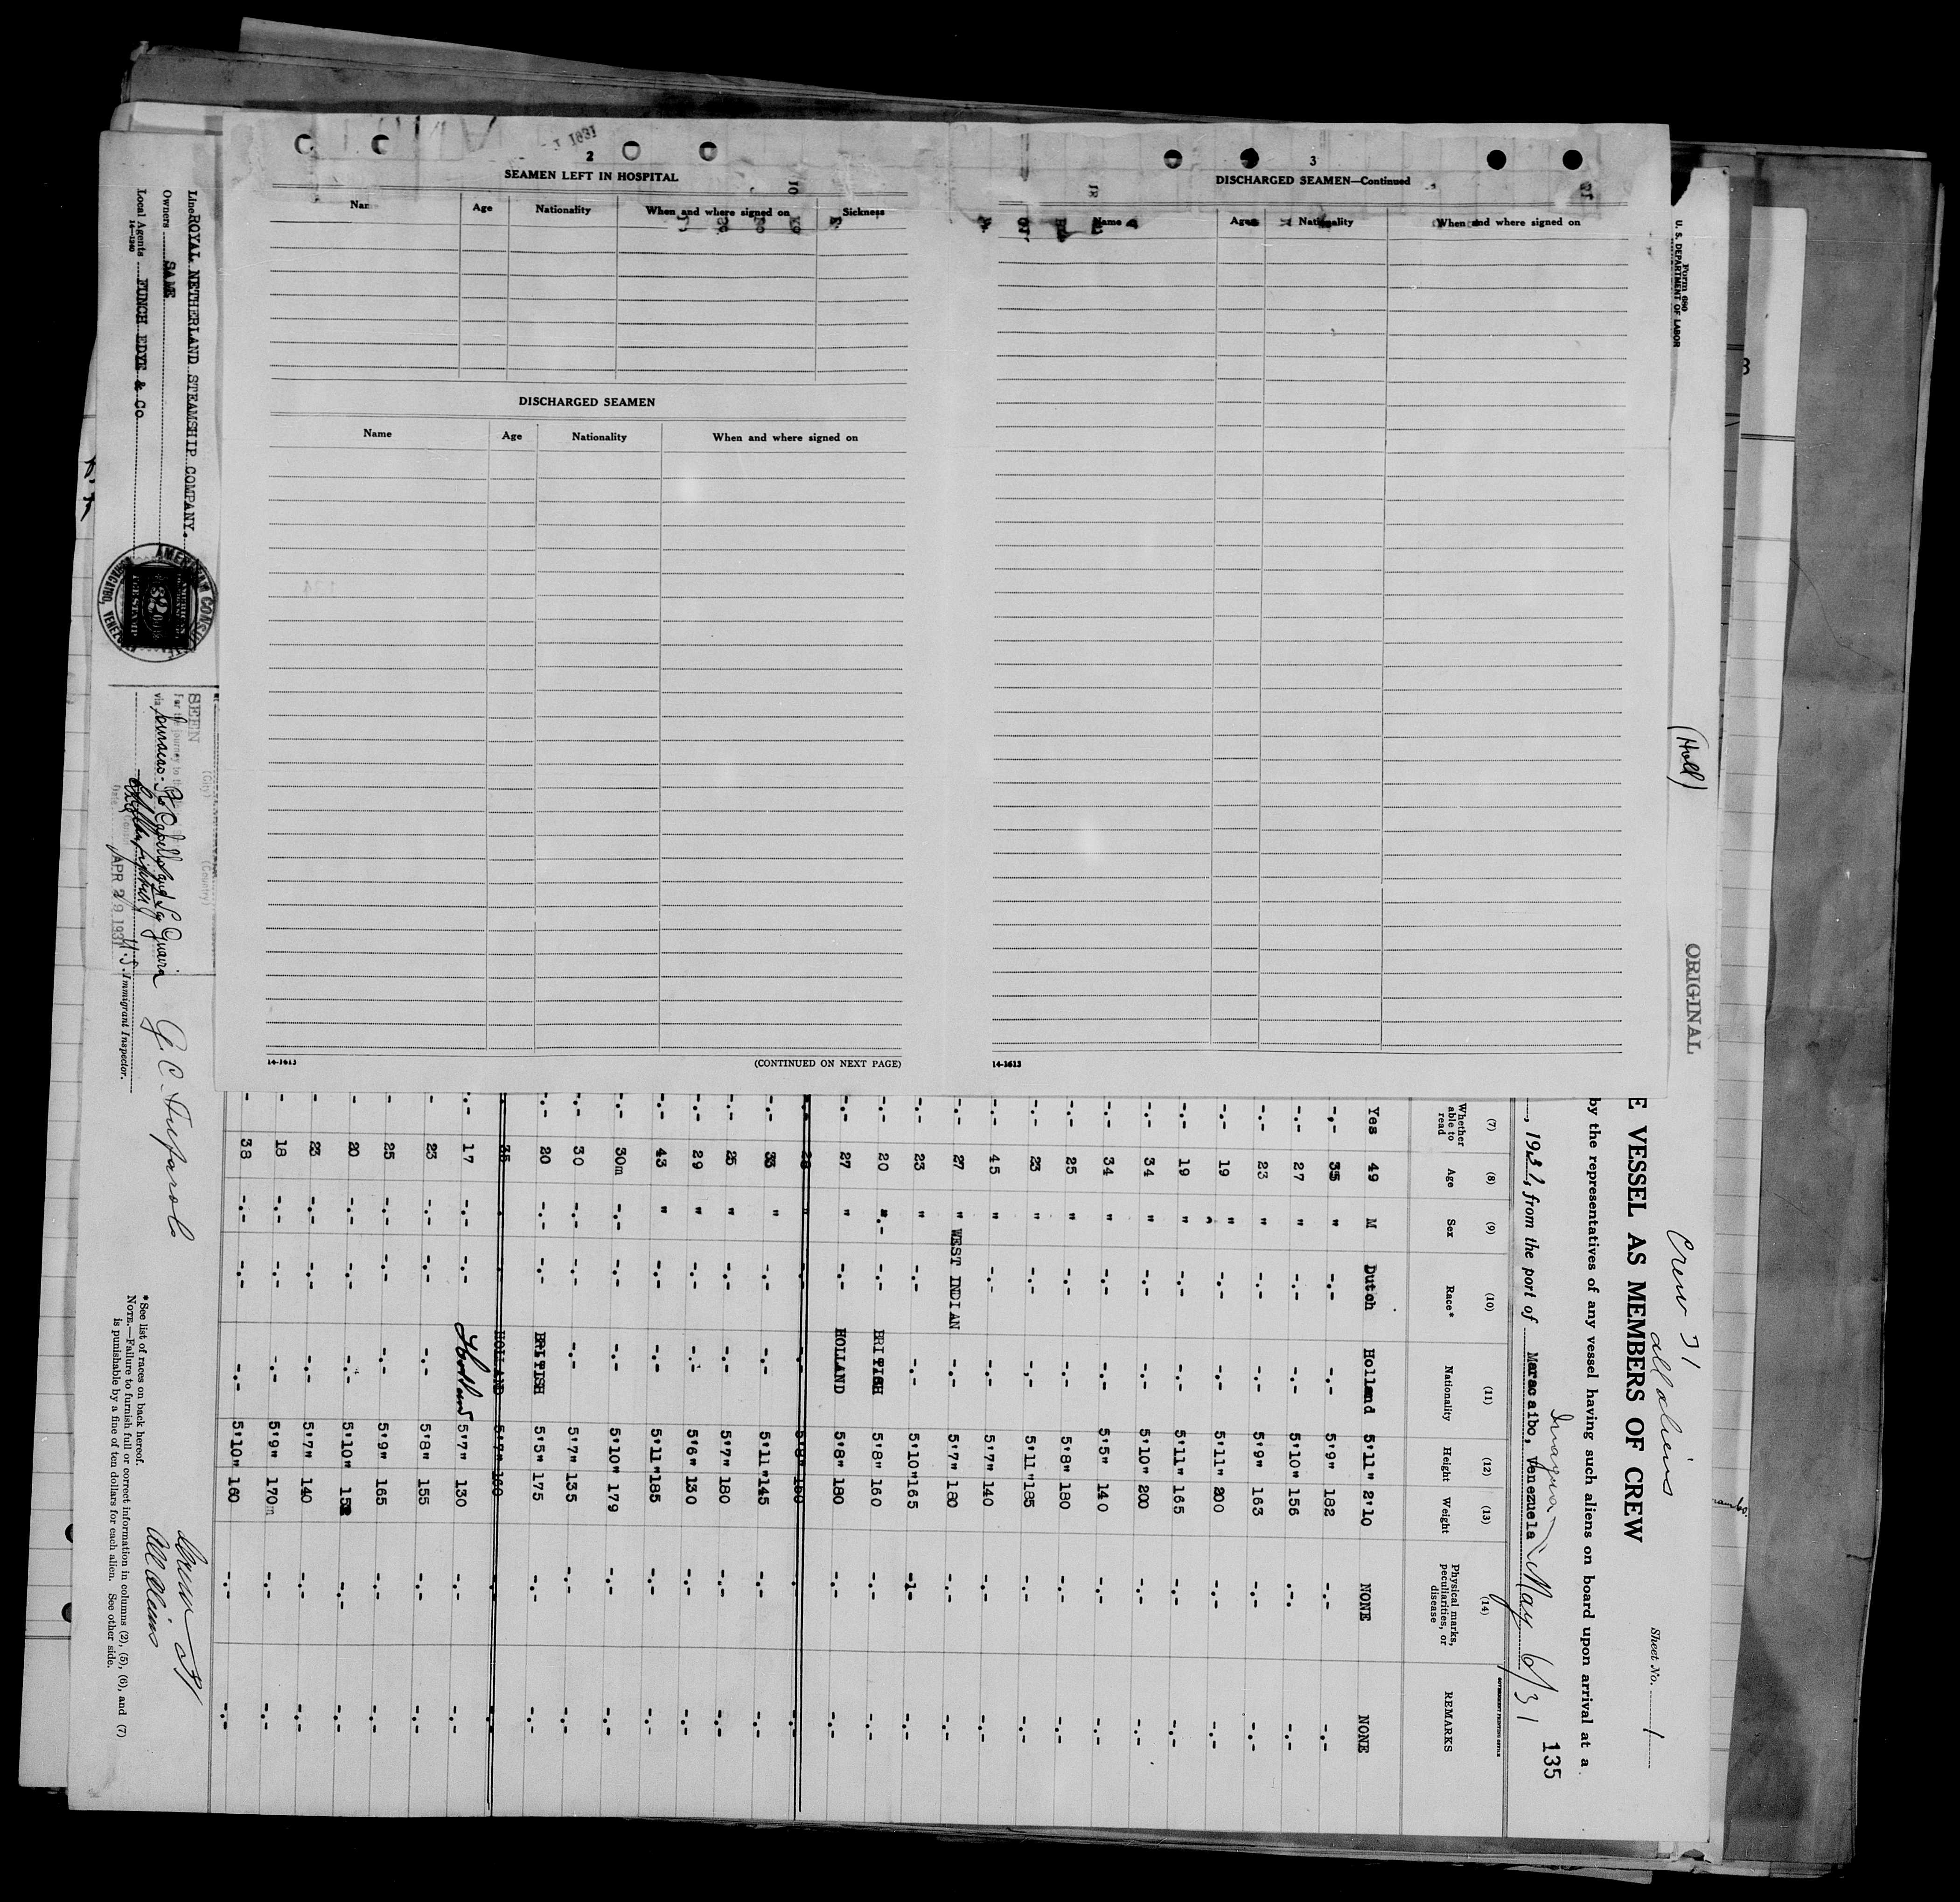 2
SEAMEN LEFT IN HOSPITAL
Name Age Nationality When and where signed on Sickness
DISCHARGED SEAMEN
Name Age Nationality When and where signed on
14-1613 (CONTINUED ON NEXT PAGE)
3
DISCHARGED SEAMEN—Continued
Name Age Nationality When and where signed on
14-1613
Form 680
U. S. DEPARTMENT OF LABOR
(Holl)
ORIGINAL
Crew 31
all aliens
Sheet No. 1
E VESSEL AS MEMBERS OF CREW
by the representatives of any vessel having such aliens on board upon arrival at a
, 1931, from the port of Maracaibo, Venezuela May 6/31
135
(7) (8) (9) (10) (11) (12) (13) (14)
Whether able to read Age Sex Race* Nationality Height Weight Physical marks, peculiarities, or disease REMARKS
Yes 49 M Dutch Holland 5'11" 2'10 NONE NONE
-.- 35 " -.- -.- 5'9" 182 -.- -.-
-.- 27 " -.- -.- 5'10" 156 -.- -.-
-.- 23 " -.- -.- 5'9" 163 -.- -.-
-.- 19 " -.- -.- 5'11" 200 -.- -.-
-.- 19 " -.- -.- 5'11" 165 -.- -.-
-.- 34 " -.- -.- 5'10" 200 -.- -.-
-.- 34 " -.- -.- 5'5" 140 -.- -.-
-.- 25 " -.- -.- 5'8" 180 -.- -.-
-.- 23 " -.- -.- 5'11" 185 -.- -.-
-.- 45 " -.- -.- 5'7" 140 -.- -.-
-.- 27 " WEST INDIAN -.- 5'7" 180 -.- -.-
-.- 23 " -.- -.- 5'10" 165 -.- -.-
-.- 20 -.- -.- BRITISH 5'8" 160 -.- -.-
-.- 27 " -.- HOLLAND 5'8" 180 -.- -.-
-.- 28 " -.- -.- 5'8" 150 -.-
-.- 33 " -.- -.- 5'11" 145 -.- -.-
-.- 25 " -.- -.- 5'7" 180 -.- -.-
-.- 29 " -.- -.- 5'6" 130 -.- -.-
-.- 43 " -.- -.- 5'11" 185 -.- -.-
-.- 30m -.- -.- -.- 5'10" 179 -.- -.-
-.- 30 -.- -.- -.- 5'7" 135 -.- -.-
-.- 20 -.- -.- BRITISH 5'5" 175 -.- -.-
35 HOLLAND 5'7" 160
-.- 17 -.- -.- Holland 5'7" 130 -.- -.-
- 23 -.- -.- -.- 5'8" 155 -.- -.-
- 25 -.- -.- -.- 5'9" 165 -.- -.-
- 20 -.- -.- -.- 5'10" -.- -.-
- 23 -.- -.- -.- 5'7" 140 -.- -.-
- 18 -.- -.- -.- 5'9" 170m -.- -.-
- 38 -.- -.- -.- 5'10" 160 -.- -.-
Line ROYAL NETHERLAND STEAMSHIP COMPANY.
Owners SAME
Local Agents FUNCH EDYE & Co
14-1240
AMERICAN CONSULATE
MARACAIBO, VENEZUELA
SEEN
(City) (Country)
For the journey to the
via Curacao - Pto Cabello and La Guaira
APR 29 1931
U.S. Immigrant Inspector.
Crew 31
All Aliens
*See list of races on back hereof.
NOTE.—Failure to furnish full or correct information in columns (2), (5), (6), and (7)
is punishable by a fine of ten dollars for each alien. See other side.